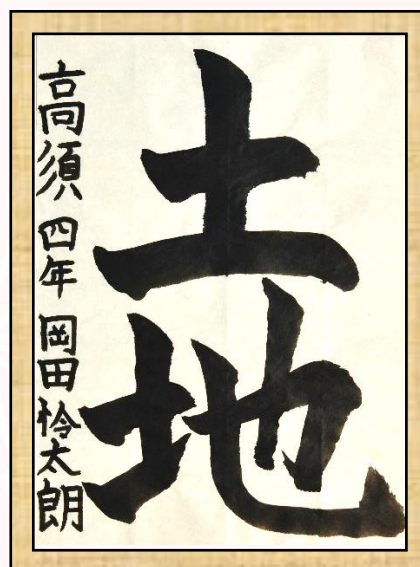 土地
高須 四年 岡田怜太朗